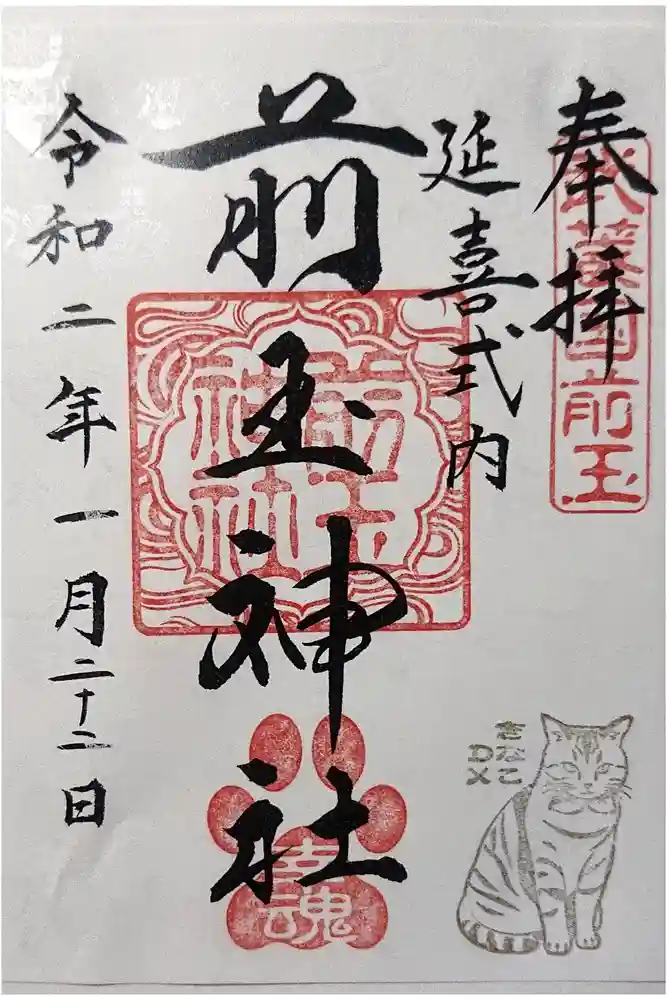 奉拝
武蔵国前玉
延喜式内
前玉神社
前玉
神社
幸魂
令和二年一月二十二日
きなこ
DX